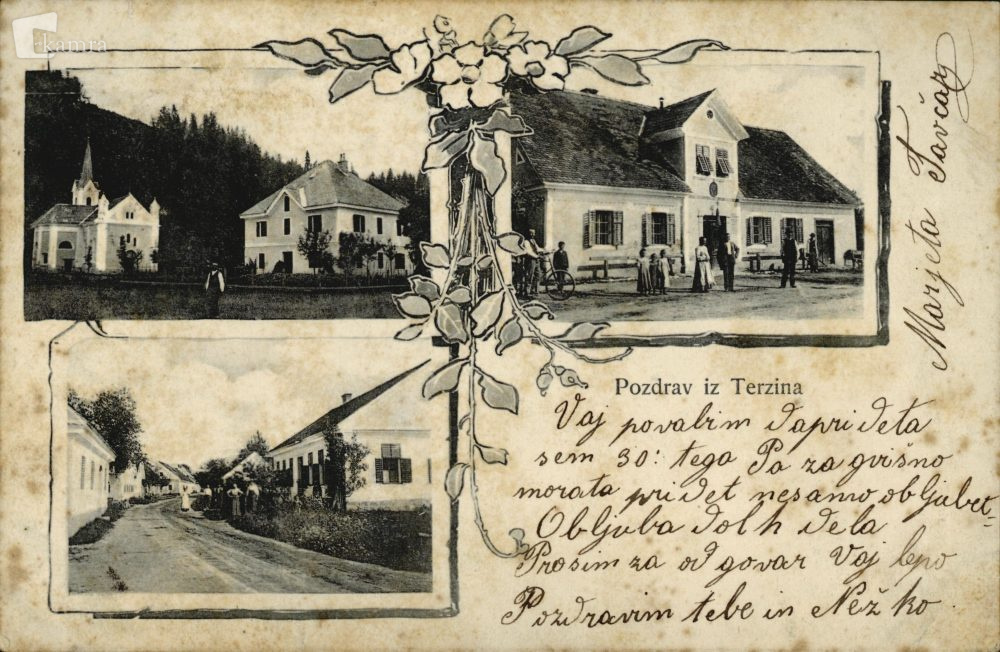 kamra
Pozdrav iz Terzina
Vaj povabim dapri deta
sem 30: tega Pa za gvišno
morata pri det nesamo obljubet-
Obljuba dolh dela
Prosim za od govar Vaj lepo
Pozdravim tebe in Nežko
Marjeta Tavčar